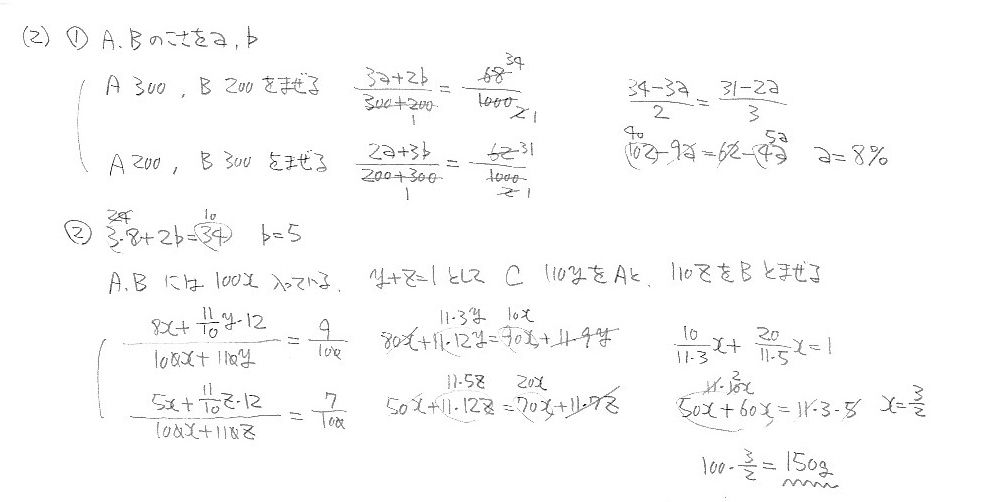 (2) ① A.Bのこさをa,b
A 300 , B 200 をまぜる (3a+2b)/(300+200) = 68/1000 34 1 2 1 (34-3a)/2 = (31-2a)/3
102-9a=62-4a 40 5a a=8%
A 200 , B 300 をまぜる (2a+3b)/(200+300) = 62/1000 31 1 2 1
② 3・8+2b=34 24 10 b=5
A.B には 100x 入っている. y+z=1 として C 110yをAと、110zをBとまぜる
(8x+11/10 y・12)/(100x+110y) = 9/100 80x+11・12y=90x+11・9y 11・3y 10x 10/(11・3) x + 20/(11・5) x=1
(5x+11/10 z・12)/(100x+110z) = 7/100 50x+11・12z=70x+11・7z 11・5z 20x 50x+60x=11・3・5 11・10x 2 x=3/2
100・3/2 = 150g